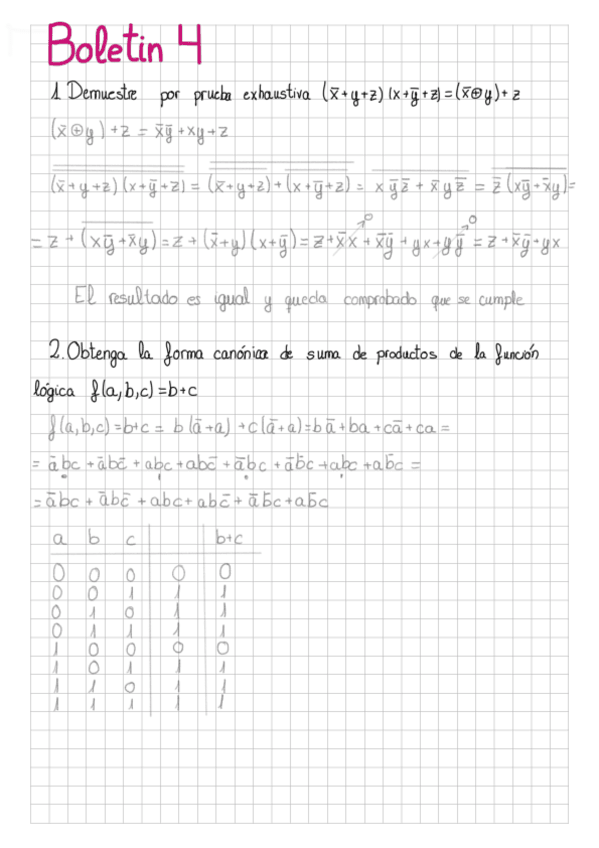 Boletin 4
1 Demuestre por prueba exhaustiva (x̄+y+z)(x+ȳ+z)=(x̄⊕y)+z
(x̄⊕y)+z = x̄ȳ+xy+z
(x̄+y+z)(x+ȳ+z) = (x̄+y+z)+(x+ȳ+z) = xȳz̄ + x̄yz̄ = z̄(xȳ+x̄y)=
= z + (xȳ+x̄y) = z + (x̄+y)(x+ȳ) = z+x̄x + x̄ȳ + yx+yȳ = z+x̄ȳ+yx
0 0
El resultado es igual y queda comprobado que se cumple
2. Obtenga la forma canónica de suma de productos de la función
lógica f(a,b,c)=b+c
f(a,b,c)=b+c = b(ā+a) +c(ā+a)=bā+ba+cā+ca =
= ābc + ābc̄ + abc +abc̄ + ābc + āb̄c +abc +ab̄c =
= ābc + ābc̄ + abc+ abc̄ + āb̄c +ab̄c
a b c b+c
0 0 0 0 0
0 0 1 1 1
0 1 0 1 1
0 1 1 1 1
1 0 0 0 0
1 0 1 1 1
1 1 0 1 1
1 1 1 1 1